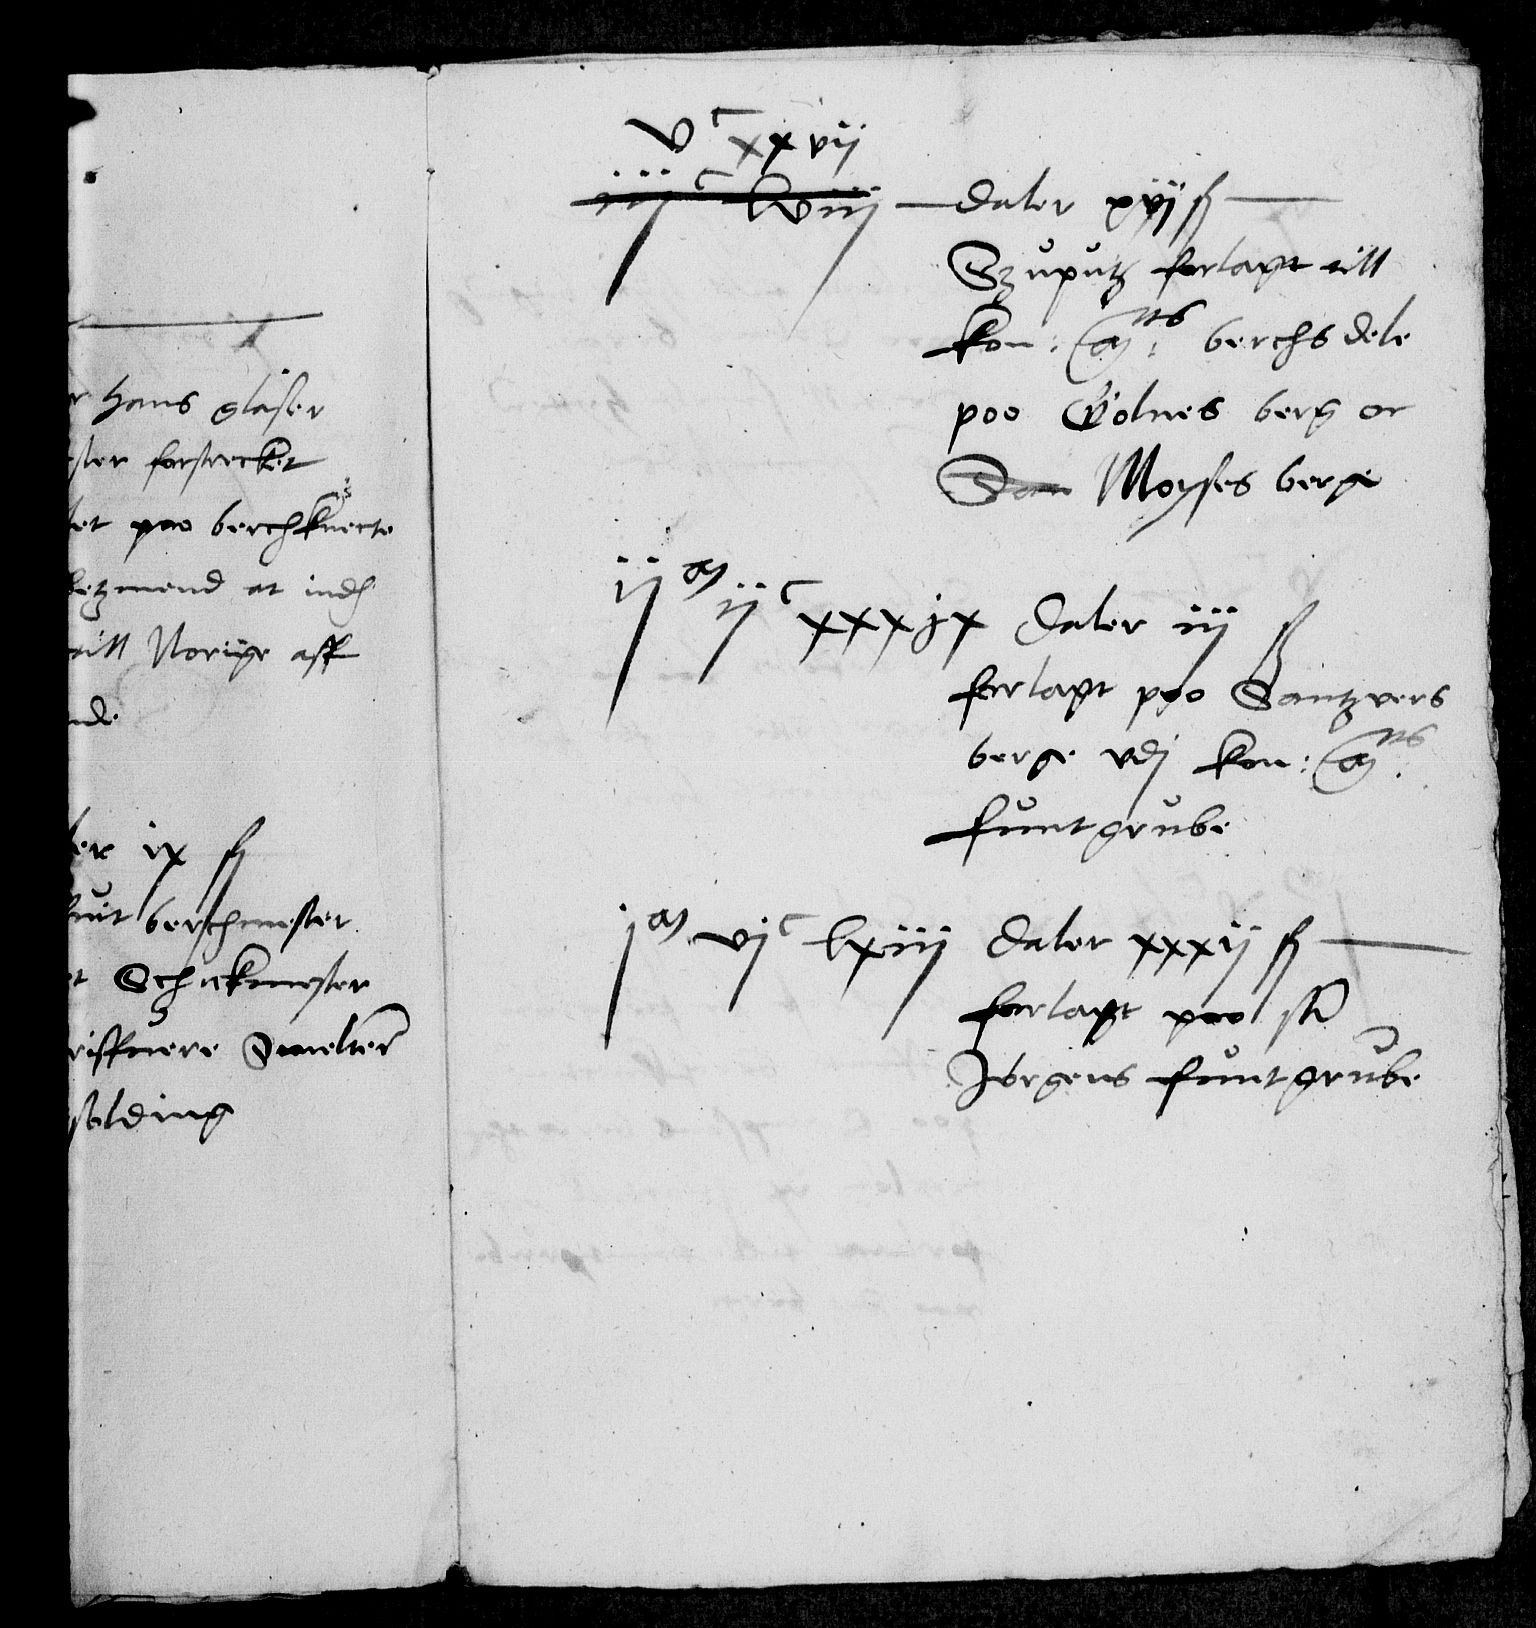 r Hans glaser
ster forstrecket
let poo berchknecte
betzmend at indh
till Norige aff
nde
ler ix sz
berchmester
Schickmester
driffuere Smelter
solding
v^c xxvij
iij^c lviij daler xvij sz
Szuputz forlagt till
kon: M^tts: berchs dele
poo Gölnes berg oc
San Moyses berge
ij^m ij^c xxxix daler iij sz
forlagt poo Santzvers
berge vdj kon: M^tts.
funtgrube
j^m vj^c lxiij daler xxxij sz
forlagt poo sti
Jörgens funtgrube